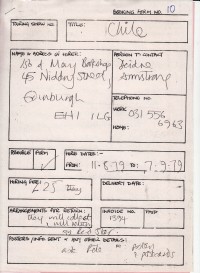 BOOKING FORM NO. 10
TOURING SHOW NO.
TITLE:
Chile
NAME & ADDRESS OF HIRER:
1st of May Bookshop
45 Niddry Street,
Edinburgh
EH1 1LG
PERSON TO CONTACT
Deidre
Armstrong
TELEPHONE NO.
WORK: 031 556
6963
HOME:
FORM
HIRE DATES:-
FROM: 11-8-79 TO: 7-9-79
HIRING FEE:
£25
DELIVERY DATE:
ARRANGEMENTS FOR RETURN:
they will collect
& will return
by Red Star
INVOICE NO.
1394
PAID
POSTERS/INFO SENT & ANY OTHER DETAILS:
ask Fola
poster
& postcards